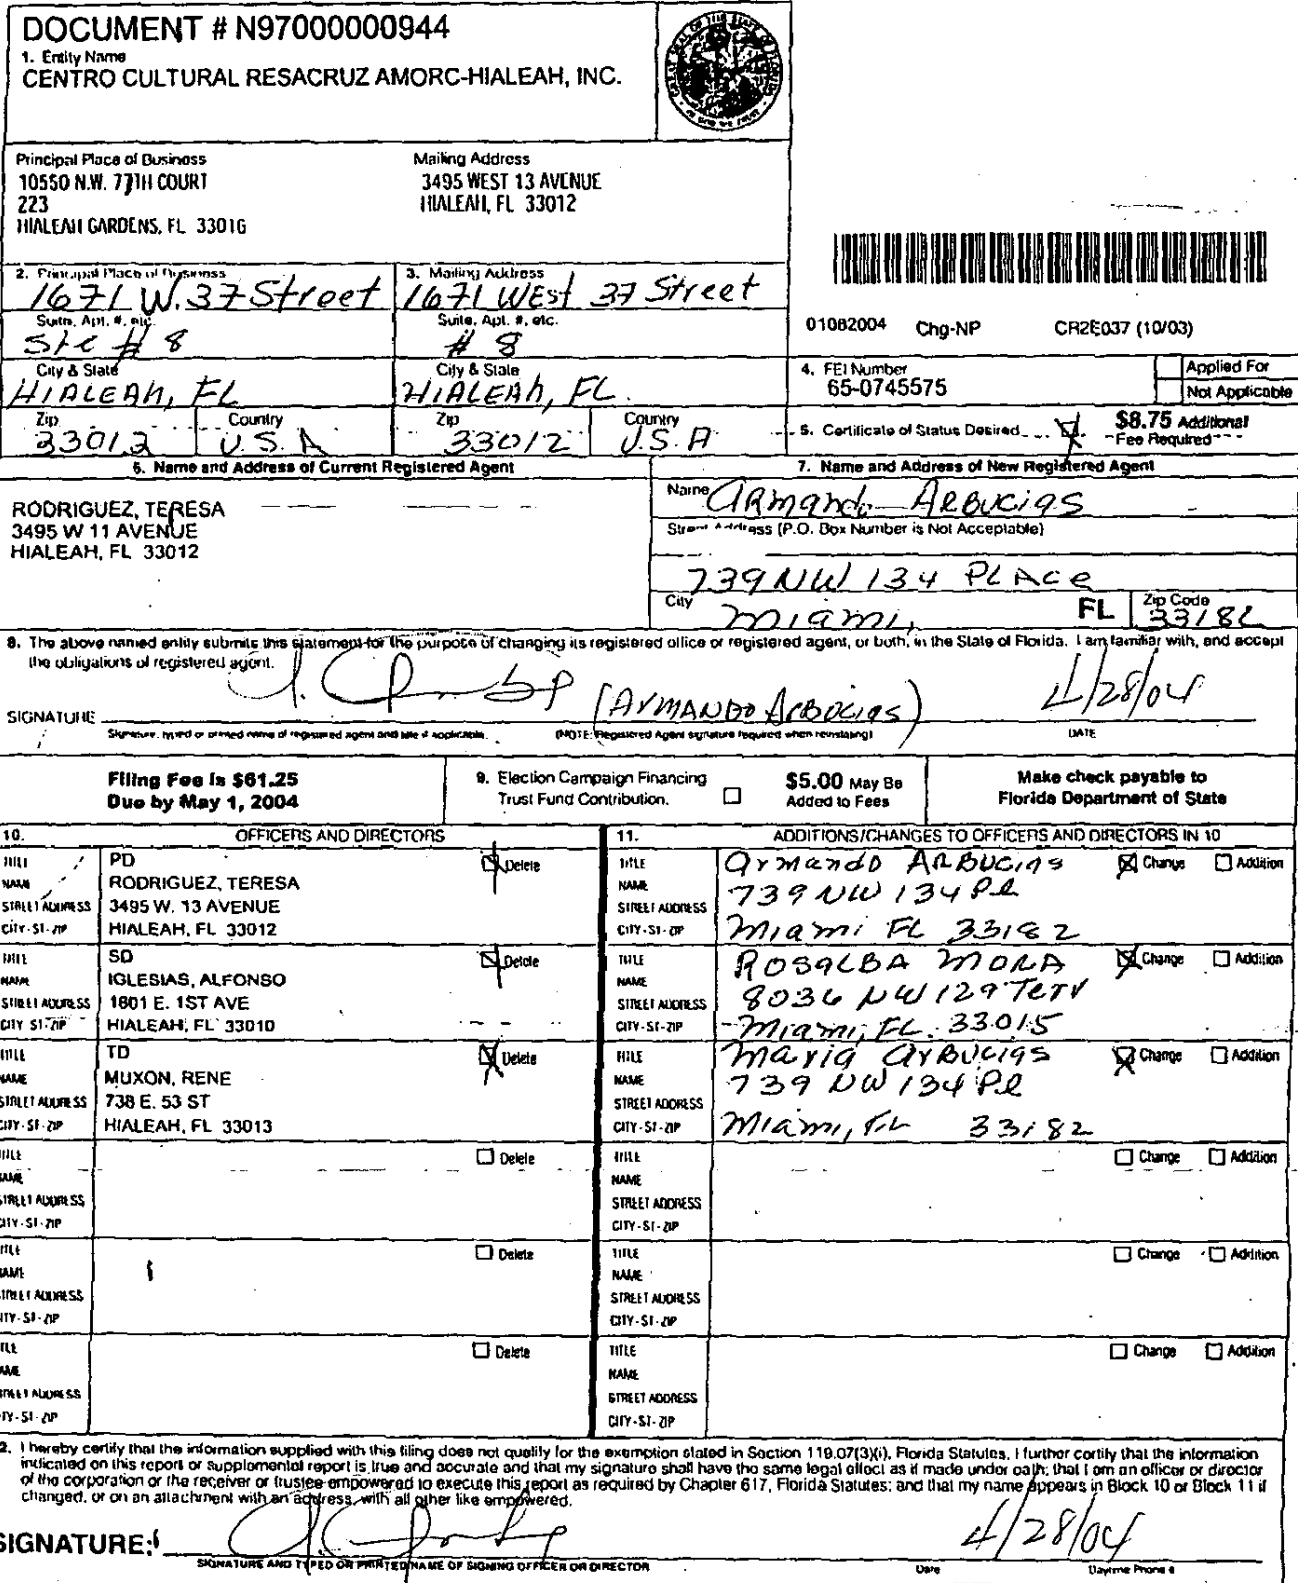 DOCUMENT # N97000000944
1. Entity Name
CENTRO CULTURAL RESACRUZ AMORC-HIALEAH, INC.
Principal Place of Business
10550 N.W. 77TH COURT
223
HIALEAH GARDENS, FL 33016
Mailing Address
3495 WEST 13 AVENUE
HIALEAH, FL 33012
2. Principal Place of Business
1671 W. 37 Street
Suite, Apt. #, etc.
Ste # 8
City & State
HIALEAH, FL
Zip
33012
Country
U.S.A
3. Mailing Address
1671 West 37 Street
Suite, Apt. #, etc.
# 8
City & State
HIALEAH, FL.
Zip
33012
Country
U.S.A
01082004 Chg-NP CR2E037 (10/03)
4. FEI Number
65-0745575
Applied For
Not Applicable
5. Certificate of Status Desired
$8.75 Additional
Fee Required
6. Name and Address of Current Registered Agent
RODRIGUEZ, TERESA
3495 W 11 AVENUE
HIALEAH, FL 33012
7. Name and Address of New Registered Agent
Name Armando Arbucias
Street Address (P.O. Box Number is Not Acceptable)
739 NW 134 PLACe
City Miami, FL Zip Code 33182
8. The above named entity submits this statement for the purpose of changing its registered office or registered agent, or both, in the State of Florida. I am familiar with, and accept
the obligations of registered agent.
SIGNATURE (ArMANDO ArBucias) 4/28/04
Signature, typed or printed name of registered agent and title if applicable. (NOTE: Registered Agent signature required when reinstating) DATE
Filing Fee is $61.25
Due by May 1, 2004
9. Election Campaign Financing
Trust Fund Contribution.
$5.00 May Be
Added to Fees
Make check payable to
Florida Department of State
10. OFFICERS AND DIRECTORS
TITLE PD Delete
NAME RODRIGUEZ, TERESA
STREET ADDRESS 3495 W. 13 AVENUE
CITY-ST-ZIP HIALEAH, FL 33012
TITLE SD Delete
NAME IGLESIAS, ALFONSO
STREET ADDRESS 1601 E. 1ST AVE
CITY-ST-ZIP HIALEAH, FL 33010
TITLE TD Delete
NAME MUXON, RENE
STREET ADDRESS 738 E. 53 ST
CITY-ST-ZIP HIALEAH, FL 33013
TITLE Delete
NAME
STREET ADDRESS
CITY-ST-ZIP
TITLE Delete
NAME
STREET ADDRESS
CITY-ST-ZIP
TITLE Delete
NAME
STREET ADDRESS
CITY-ST-ZIP
11. ADDITIONS/CHANGES TO OFFICERS AND DIRECTORS IN 10
TITLE Armando ARBUCIAS Change Addition
NAME 739 NW 134 Pl
STREET ADDRESS
CITY-ST-ZIP Miami FL 33182
TITLE ROSALBA MORA Change Addition
NAME
STREET ADDRESS 8036 NW 129 Terr
CITY-ST-ZIP Miami, FL. 33015
TITLE Maria Arbucias Change Addition
NAME 739 NW 134 Pl
STREET ADDRESS
CITY-ST-ZIP Miami, FL 33182
TITLE Change Addition
NAME
STREET ADDRESS
CITY-ST-ZIP
TITLE Change Addition
NAME
STREET ADDRESS
CITY-ST-ZIP
TITLE Change Addition
NAME
STREET ADDRESS
CITY-ST-ZIP
2. I hereby certify that the information supplied with this filing does not qualify for the exemption stated in Section 119.07(3)(i), Florida Statutes. I further certify that the information
indicated on this report or supplemental report is true and accurate and that my signature shall have the same legal effect as if made under oath; that I am an officer or director
of the corporation or the receiver or trustee empowered to execute this report as required by Chapter 617, Florida Statutes; and that my name appears in Block 10 or Block 11 if
changed, or on an attachment with an address, with all other like empowered.
SIGNATURE: 4/28/04
SIGNATURE AND TYPED OR PRINTED NAME OF SIGNING OFFICER OR DIRECTOR Date Daytime Phone #